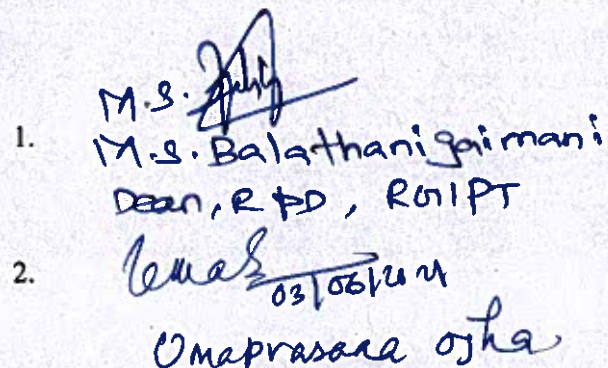 M.S.
1.
M.S. Balathanigaimani
Dean, R&D, RGIPT
2.
03/06/2021
Umaprasana Ojha